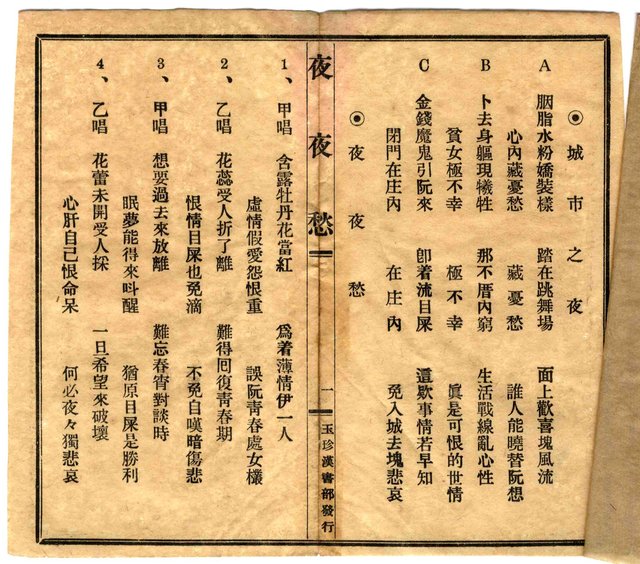 ◉城市之夜
A 胭脂水粉嬌裝樣 踏在跳舞場 面上歡喜塊風流
心內藏憂愁 藏憂愁 誰人能曉替阮想
B 卜去身軀現犧牲 那不厝內窮 生活戰線亂心性
貧女極不幸 極不幸 眞是可恨的世情
C 金錢魔鬼引阮來 卽着流目屎 這欵事情若早知
閉門在庄內 在庄內 免入城去塊悲哀
◉夜夜愁
夜夜愁 一 玉珍漢書部發行
1、甲唱 含露牡丹花當紅 爲着薄情伊一人
虛情假愛怨恨重 誤阮靑春處女欉
2、乙唱 花蕊受人折了離 難得回復靑春期
恨情目屎也免滴 不免自嘆暗傷悲
3、甲唱 想要過去來放離 難忘春宵對談時
眠夢能得來呌醒 猶原目屎是勝利
4、乙唱 花蕾未開受人採 一旦希望來破壞
心肝自己恨命呆 何必夜々獨悲哀